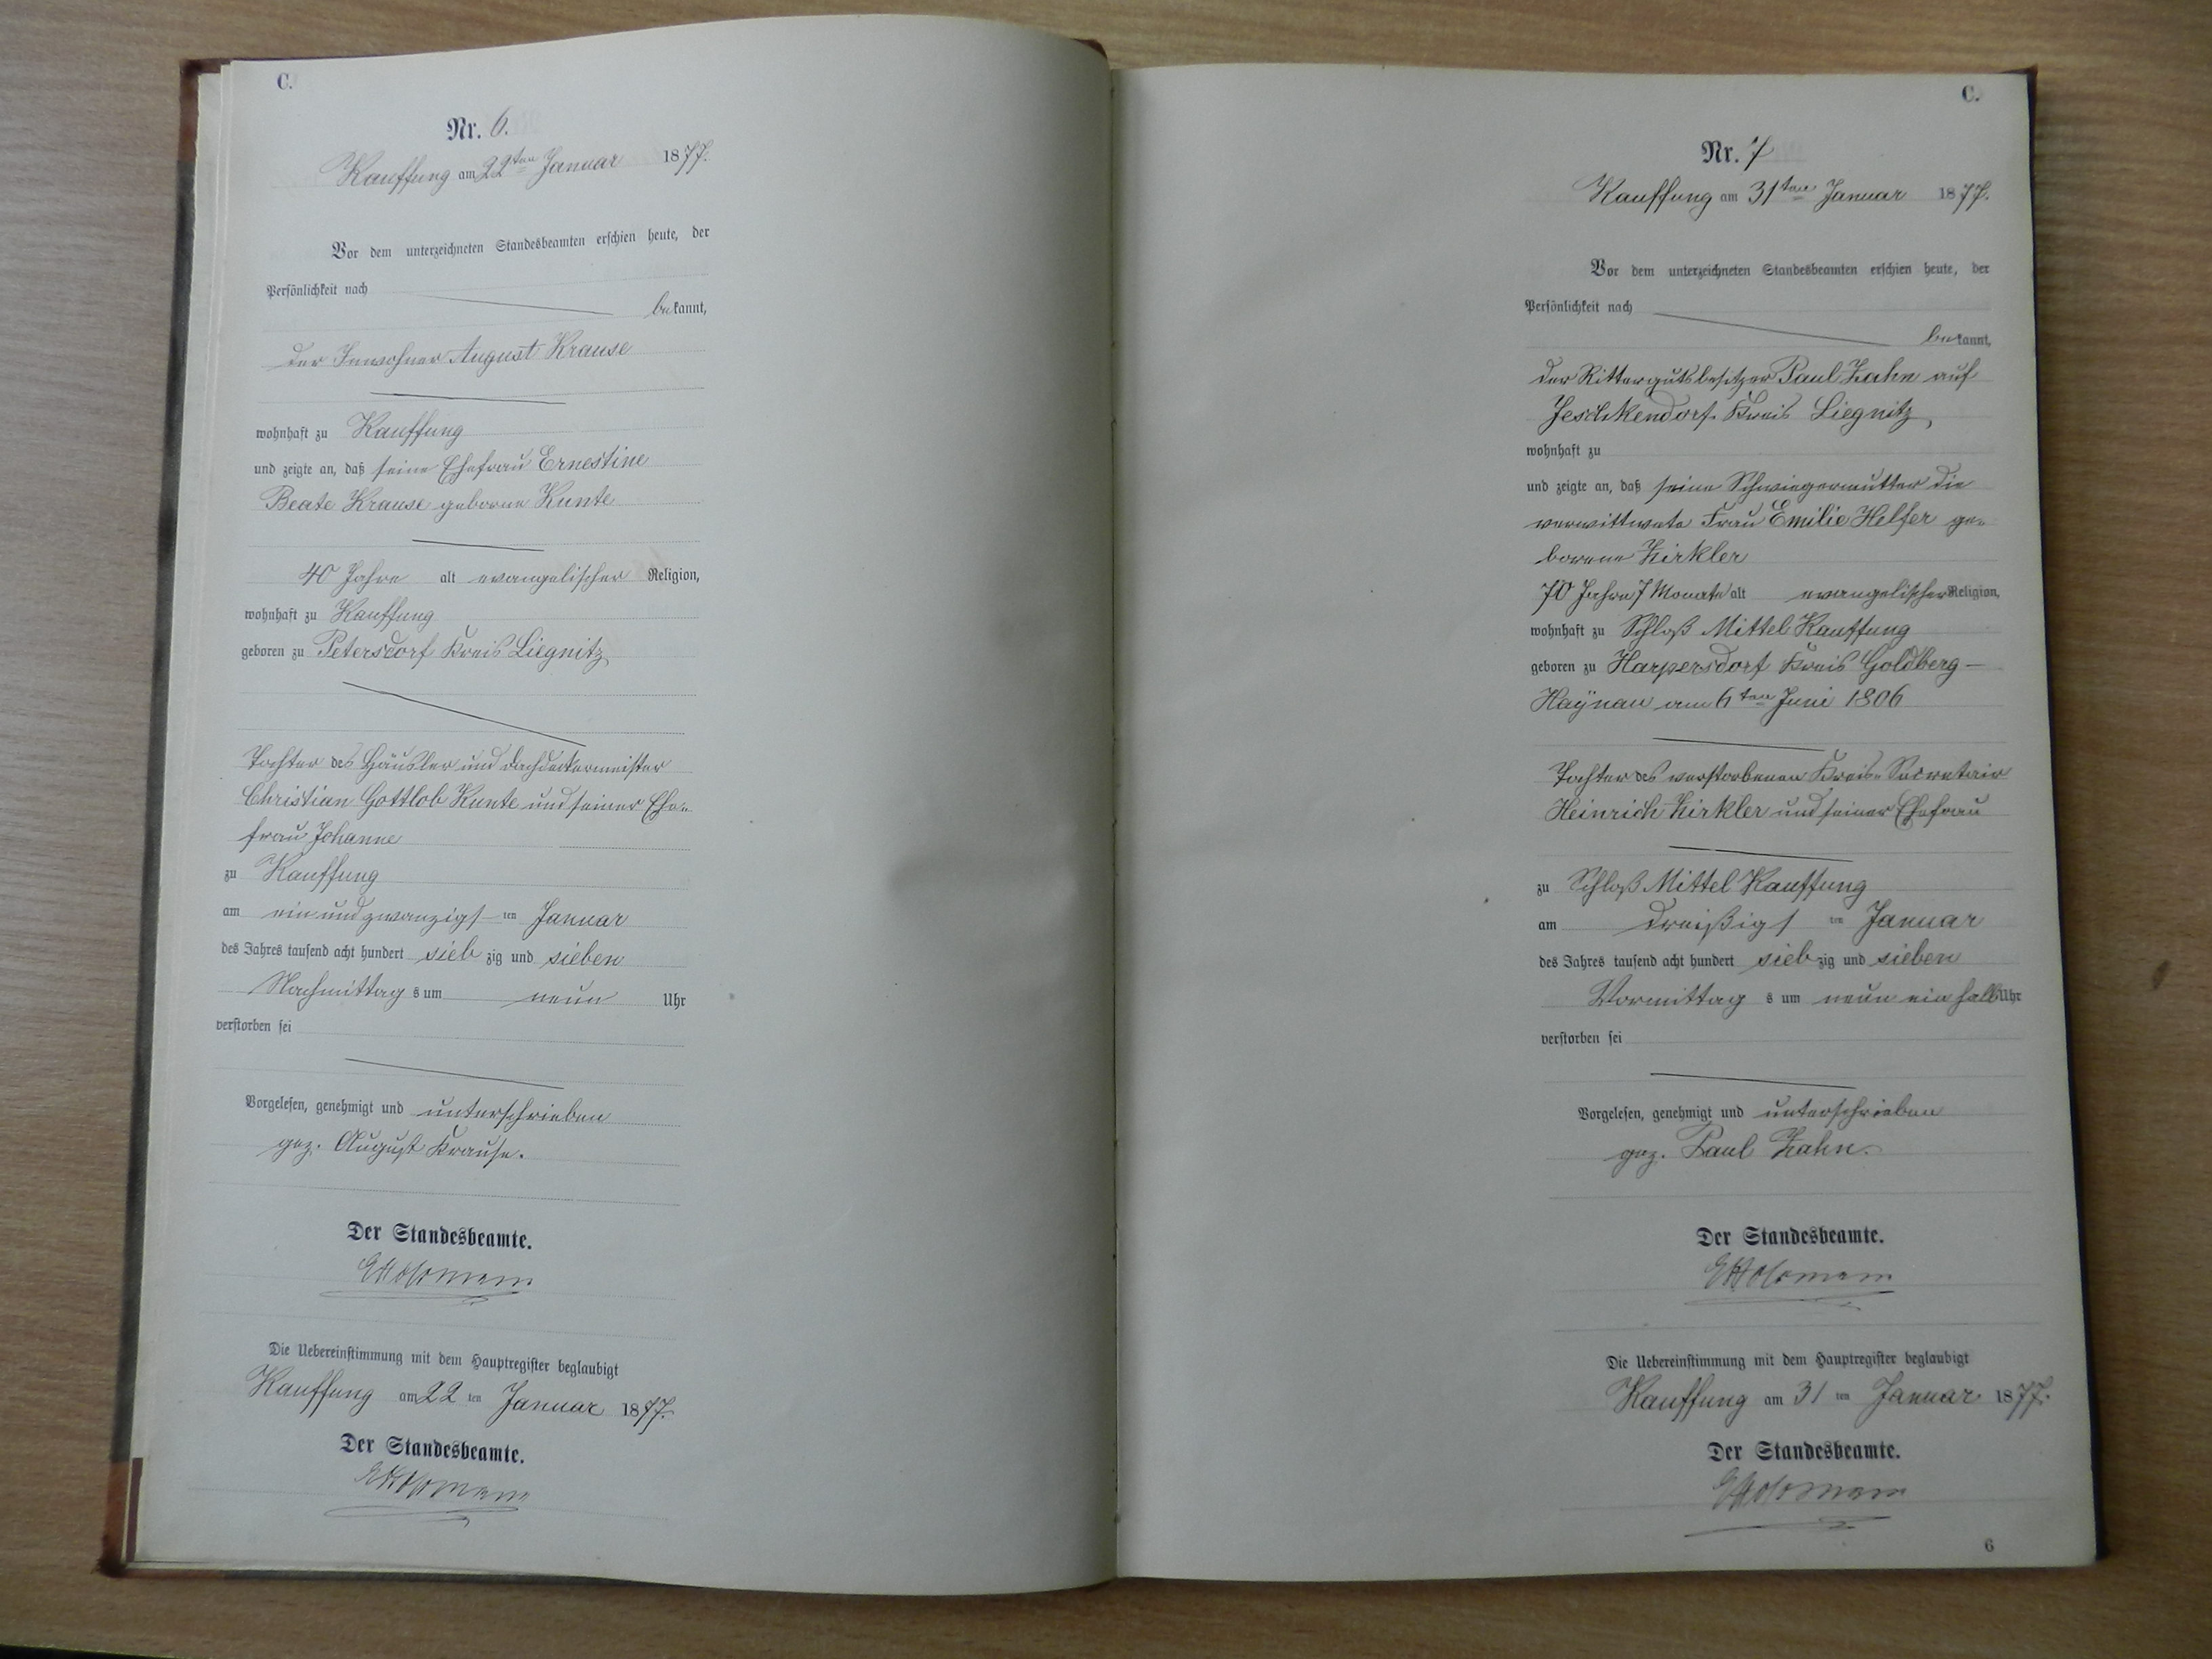 C.
Nr. 6.
Kauffung am 22ten Januar 1877.
Vor dem unterzeichneten Standesbeamten erschien heute, der
Persönlichkeit nach
bekannt,
der Inwohner August Krause
wohnhaft zu Kauffung
und zeigte an, daß seine Ehefrau Ernestine
Beate Krause geborne Kunte
40 Jahre alt evangelischer Religion,
wohnhaft zu Kauffung
geboren zu Petersdorf Kreis Liegnitz
Tochter des Häusler und Dachdeckermeister
Christian Gottlob Kunte und seiner Ehe-
frau Johanne
zu Kauffung
am ein und zwanzigsten Januar
des Jahres tausend acht hundert siebzig und sieben
Nachmittags um neun Uhr
verstorben sei
Vorgelesen, genehmigt und unterschrieben
gez. August Krause.
Der Standesbeamte.
Die Uebereinstimmung mit dem Hauptregister beglaubigt
Kauffung am 22ten Januar 1877.
Der Standesbeamte.
C.
Nr. 7
Kauffung am 31ten Januar 1877.
Vor dem unterzeichneten Standesbeamten erschien heute, der
Persönlichkeit nach
bekannt,
der Rittergutsbesitzer Paul Zahn auf
Jeschkendorf Kreis Liegnitz,
wohnhaft zu
und zeigte an, daß seine Schwiegermutter die
verwittwete Frau Emilie Helfer ge-
borene Zirkler
70 Jahre 7 Monate alt evangelischer Religion,
wohnhaft zu Schloß Mittel Kauffung
geboren zu Harpersdorf Kreis Goldberg-
Haÿnau am 6ten Juni 1806
Tochter des verstorbenen Kreis-Secretair
Heinrich Zirkler und seiner Ehefrau
zu Schloß Mittel Kauffung
am dreißigsten Januar
des Jahres tausend acht hundert siebzig und sieben
Vormittags um neun ein halb Uhr
verstorben sei
Vorgelesen, genehmigt und unterschrieben
gez. Paul Zahn.
Der Standesbeamte.
Die Uebereinstimmung mit dem Hauptregister beglaubigt
Kauffung am 31ten Januar 1877.
Der Standesbeamte.
6